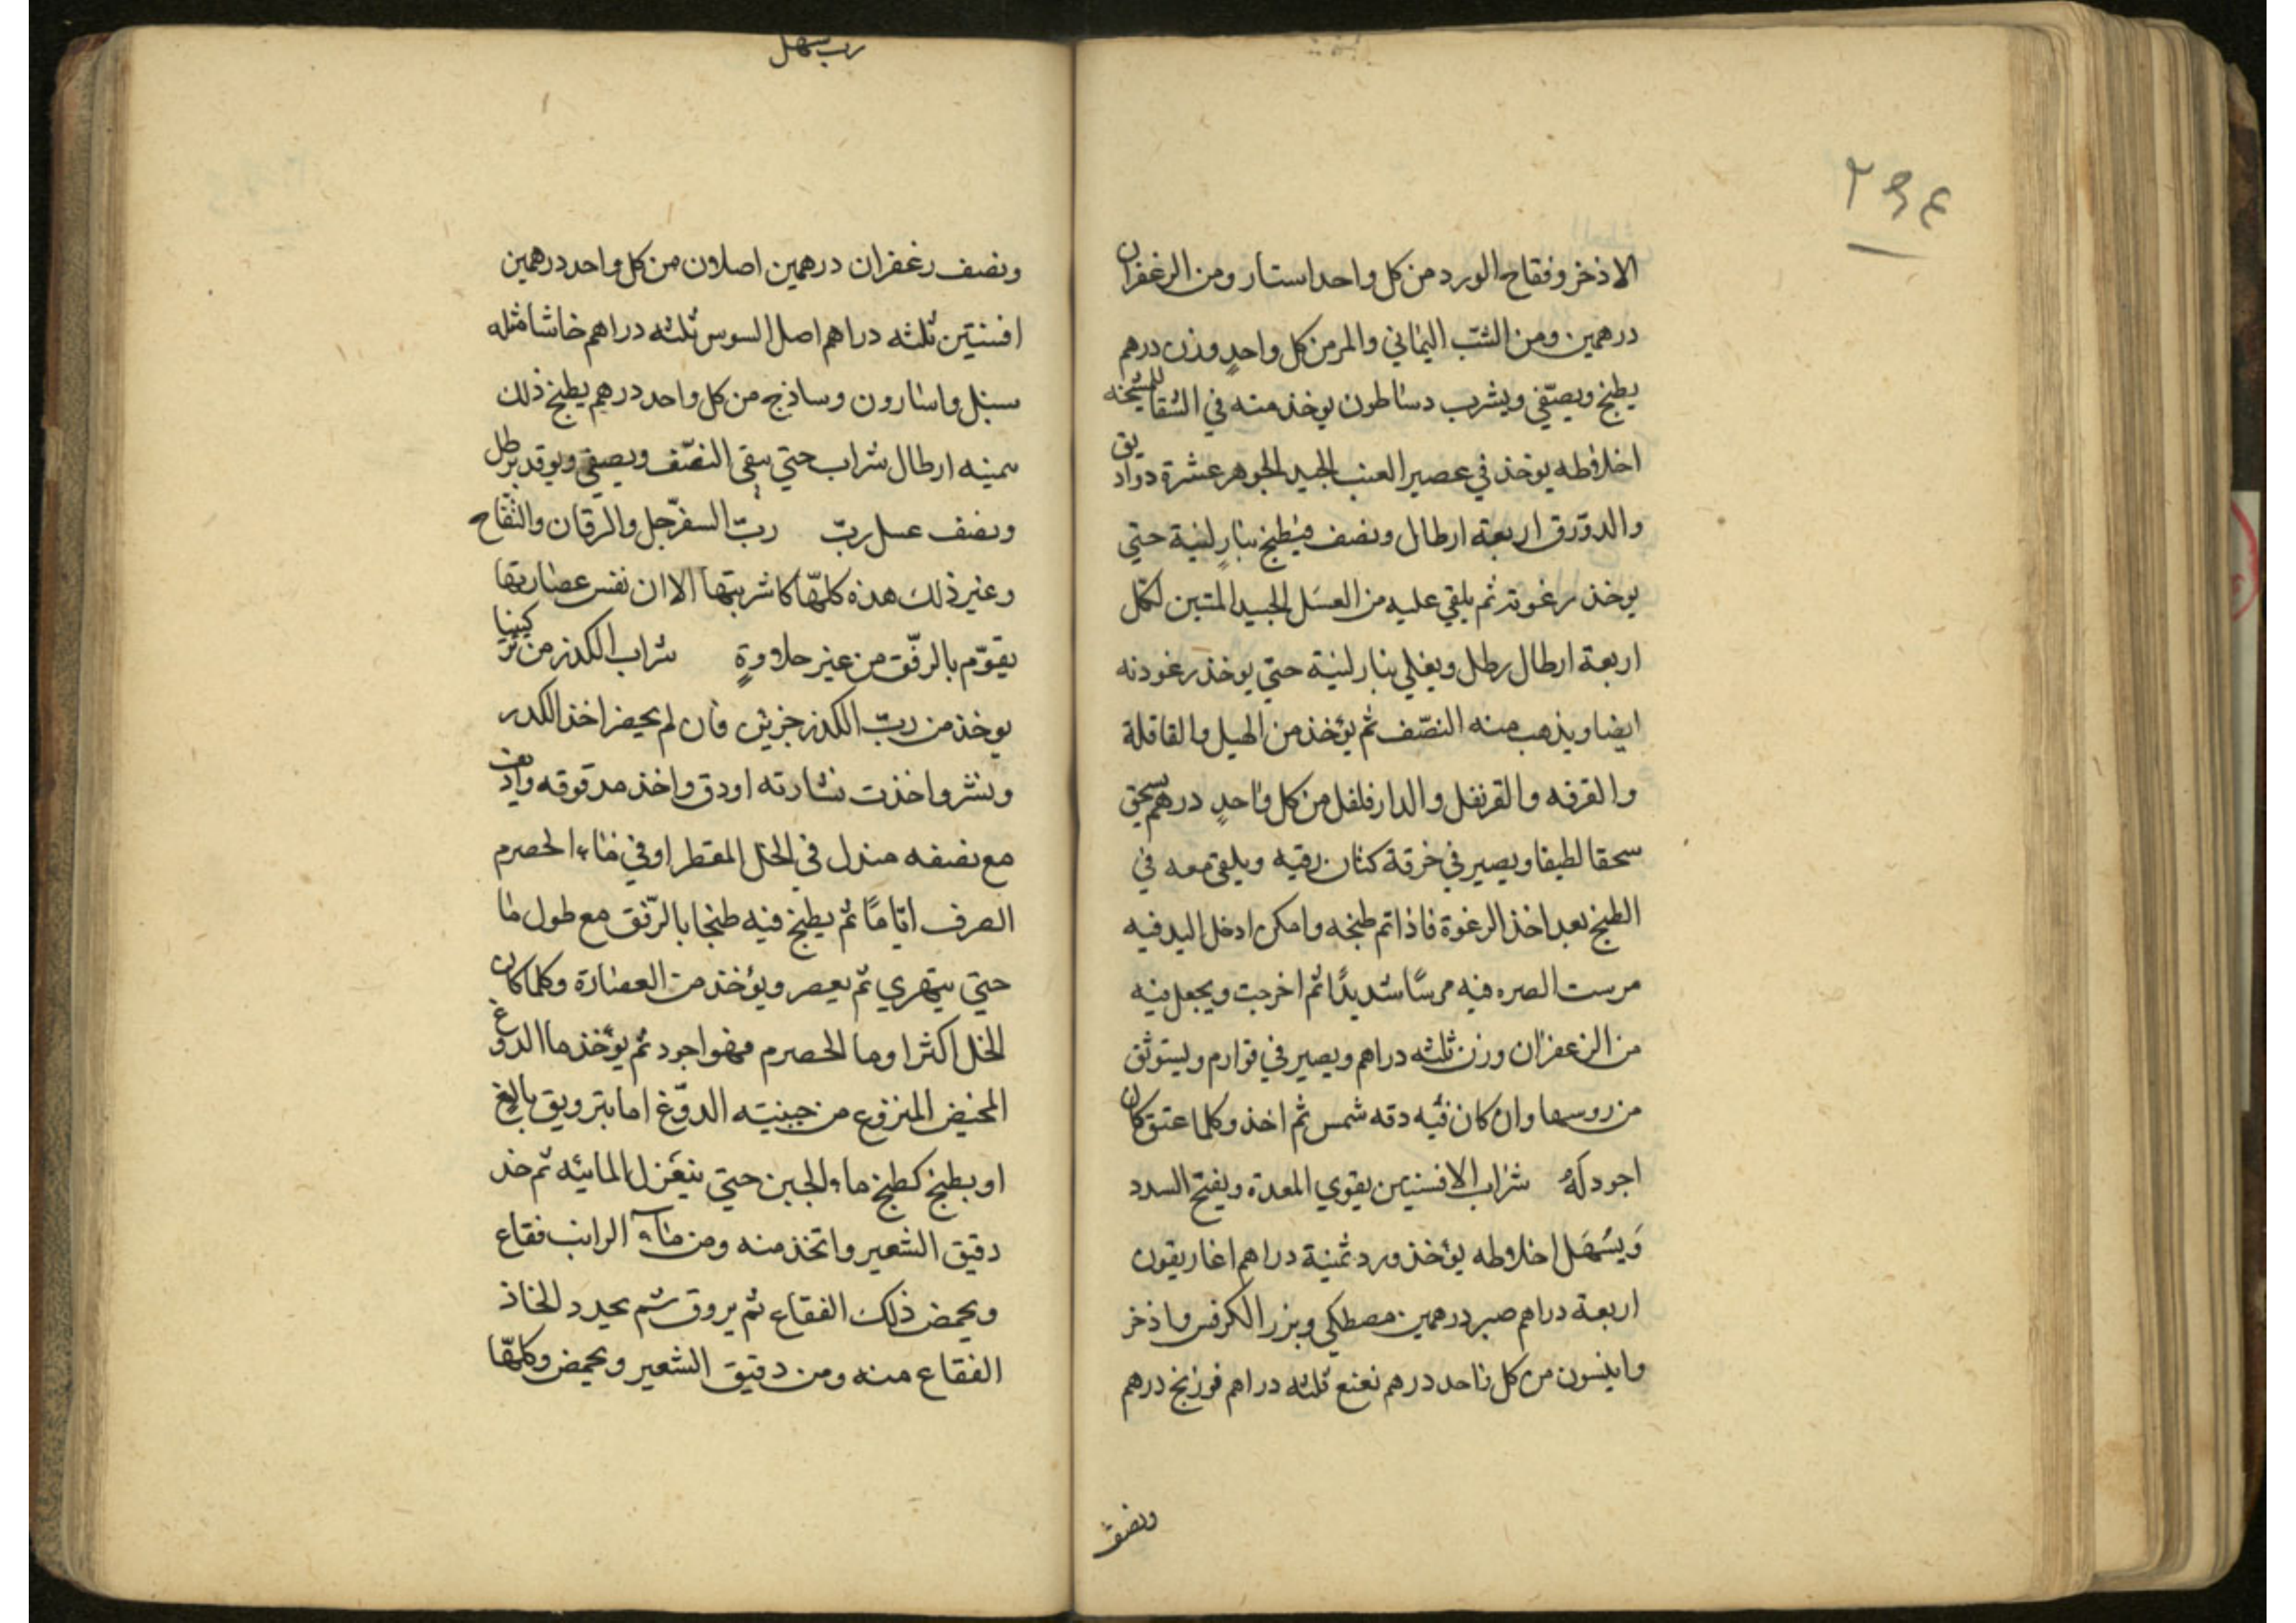 ٢٩٤
الاذخر وفقاح الورد من كل واحد استار ومن الزعفران
درهمين ومن الشب اليماني والمر من كل واحدٍ وزن درهم
يطبخ ويصفّي ويشرب دساطون يوخذ منه في الشقا للمشيخه
اخلاطه يوخذ في عصير العنب الجيد الجوهر عشرة دواريق
والدورق اربعة ارطال ونصف فيطبخ بنارٍ لينة حتي
يوخذ رغوته ثم يلقي عليه من العسَل الجيد المتين لكل
اربعة ارطال رطل ويغلي بنار لينة حتي يوخذ رغوته
ايضا ويذهب منه النصّف ثم يؤخذ من الهيل والقاقلة
والقرفه والقرنفل والدارفلفل من كل واحدٍ درهم يسحق
سحقا لطيفا ويصير في خرقة كتان رقيه ويلقي معه في
الطبخ بعد اخذ الرغوة فاذا تم طبخه وامكن ادخل اليد فيه
مرست الصره فيه مرسًا شديدًا ثم اخرجت ويجعل فيه
من الزعفران وزن ثلثه دراهم ويصير في قوارم ويستوثق
من روسها وان كان فيه دقه شمس ثم اخذ وكلما عتق كان
اجود له شراب الافسنتين يقوي المعدة ويفتح السدد
وَيسُهَل اخلاطه يؤخذ ورد ثمنية دراهم اغاريقون
اربعة دراهم صبر درهمين مصطكي وبزر الكرفس واذخر
وانيسون من كل واحد درهم نعنع ثلثه دراهم فوزنج درهم
ونصف
رب سهل
ونصف زعفران درهمين اصلاون من كل واحد درهمين
افسنتين ثلثه دراهم اصل السوس ثلثه دراهم حاشا مثله
سنبل واسارون وساذج من كل واحد درهم يطبخ ذلك
ثمنيه ارطال شراب حتي يبقي النصّف ويصفي ويوقد برطل
ونصف عسل ربّ ربّ السفرّجل والرمان والتفاح
وغير ذلك هذه كلهّا كاشربتها الا ان نفس عصارتها
يقوّم بالرفّق من غير حلاوةٍ شراب الكدر من تركيبنا
يوخذ من ربّ الكدر جزئين فان لم يحضر اخذ الكدر
ونشر واخذت نشارته اودق واخذ مدقوقه وانقع
مع نصفه صندل في الخل المقطر او في ماء الحصرم
الصرف ايّامًا ثم يطبخ فيه طبخا بالرّفق مع طول ما
حتي يتهري ثم يعصر ويؤخذ من العصارة وكلما كان
الخل اكثر او ما الحصرم فهو اجود ثم يؤخذ ما الدوغ
المخيض المنزوع من جبنيته الدوّغ اما بترويق بالغ
او يطبخ كطبخ ماء الجبن حتي ينعزل المائيه ثم خذ
دقيق الشعير واتخذ منه ومن ماء الرائب فقاع
ويحمض ذلك الفقاع ثم يروق ثم يجدد اتخاذ
الفقاع منه ومن دقيق الشعير ويحمض وكلمّا